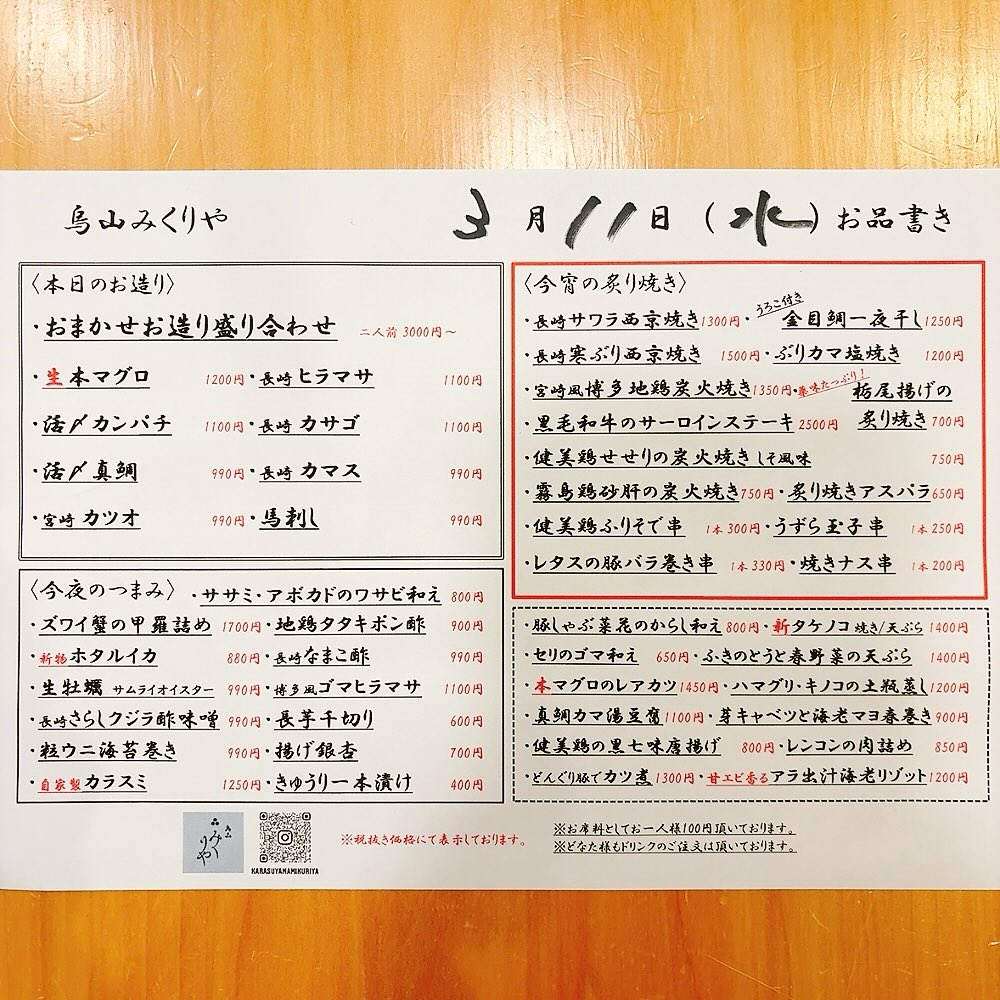 烏山みくりや 3月11日(水)お品書き
〈本日のお造り〉
・おまかせお造り盛り合わせ 二人前 3000円～
・生本マグロ 1200円・長崎ヒラマサ 1100円
・活〆カンパチ 1100円・長崎カサゴ 1100円
・活〆真鯛 990円・長崎カマス 990円
・宮崎カツオ 990円・馬刺し 990円
〈今夜のつまみ〉・ササミ・アボカドのワサビ和え 800円
・ズワイ蟹の甲羅詰め 1700円・地鶏タタキポン酢 900円
・新物ホタルイカ 880円・長崎なまこ酢 990円
・生牡蠣 サムライオイスター 990円・博多風ゴマヒラマサ 1100円
・長崎さらしクジラ酢味噌 990円・長芋千切り 600円
・粒ウニ海苔巻き 990円・揚げ銀杏 700円
・自家製カラスミ 1250円・きゅうり一本漬け 400円
〈今宵の炙り焼き〉
・長崎サワラ西京焼き 1300円・うろこ付き金目鯛一夜干し 1250円
・長崎寒ぶり西京焼き 1500円・ぶりカマ塩焼き 1200円
・宮崎風博多地鶏炭火焼き 1350円・薬味たっぷり!栃尾揚げの
・黒毛和牛のサーロインステーキ 2500円 炙り焼き 700円
・健美鶏せせりの炭火焼き しそ風味 750円
・霧島鶏砂肝の炭火焼き 750円・炙り焼きアスパラ 650円
・健美鶏ふりそで串 1本 300円・うずら玉子串 1本 250円
・レタスの豚バラ巻き串 1本 330円・焼きナス串 1本 200円
・豚しゃぶ菜花のからし和え 800円・新タケノコ 焼き/天ぷら 1400円
・セリのゴマ和え 650円・ふきのとうと春野菜の天ぷら 1400円
・本マグロのレアカツ 1450円・ハマグリ・キノコの土瓶蒸し 1200円
・真鯛カマ湯豆腐 1100円・芽キャベツと海老マヨ春巻き 900円
・健美鶏の黒七味唐揚げ 800円・レンコンの肉詰め 850円
・どんぐり豚でカツ煮 1300円・甘エビ香るアラ出汁海老リゾット 1200円
烏山みくりや
KARASUYAMAMIKURIYA
※税抜き価格にて表示しております。
※お席料としてお一人様100円頂いております。
※どなた様もドリンクのご注文は頂いております。